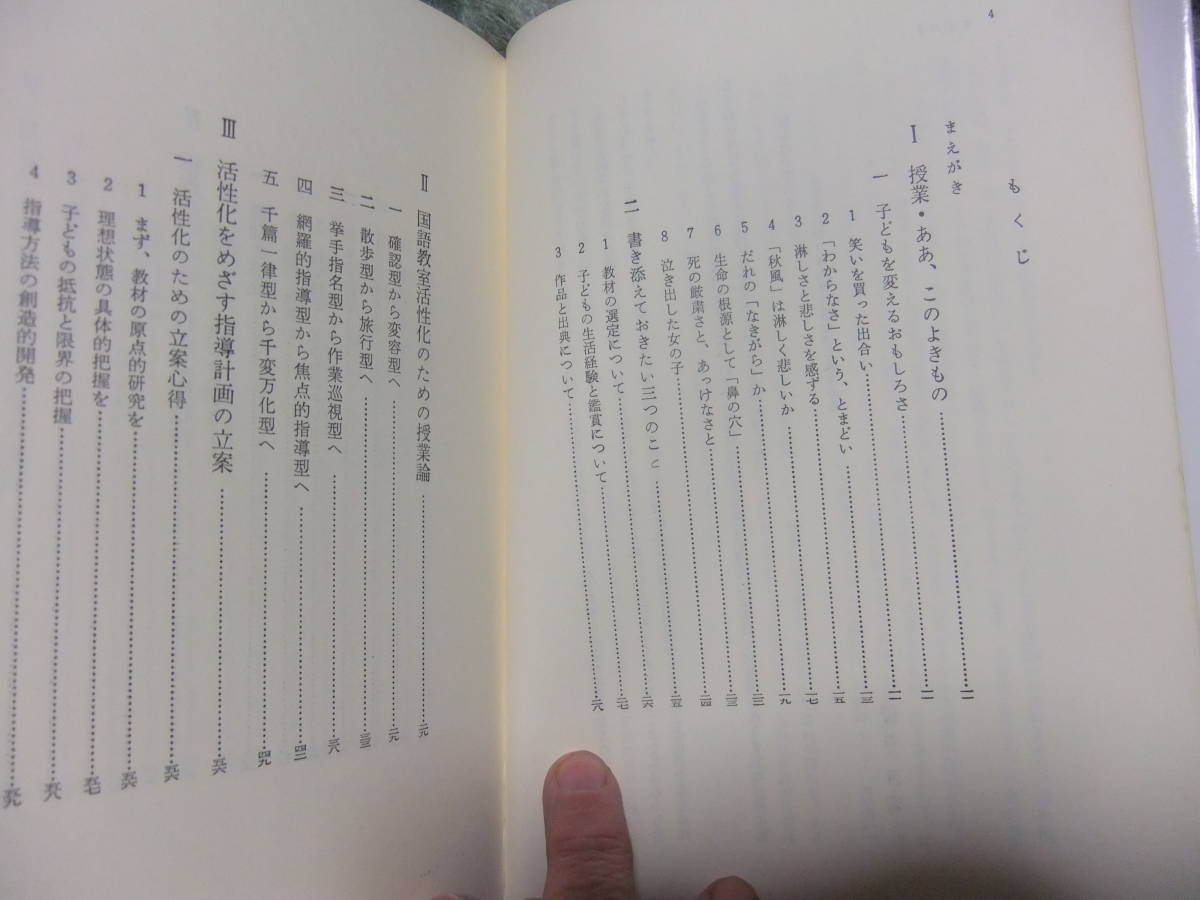 4
もくじ
まえがき
Ⅰ 授業・ああ、このよきもの……一一
一 子どもを変えるおもしろさ……一一
1 笑いを買った出合い……一一
2 「わからなさ」という、とまどい……一三
3 淋しさと悲しさを感ずる……一五
4 「秋風」は淋しく悲しいか……一七
5 だれの「なきがら」か……一九
6 生命の根源として「鼻の穴」……
7 死の厳粛さと、あっけなさと……二三
8 泣き出した女の子……二四
二 書き添えておきたい三つのこと……二五
1 教材の選定について……二六
2 子どもの生活経験と鑑賞について……二七
3 作品と出典について……二八
Ⅱ 国語教室活性化のための授業論……二九
一 確認型から変容型へ……二九
二 散歩型から旅行型へ……三三
三 挙手指名型から作業巡視型へ……三八
四 網羅的指導型から焦点的指導型へ……四二
五 千篇一律型から千変万化型へ……四九
Ⅲ 活性化をめざす指導計画の立案……五六
一 活性化のための立案心得……五六
1 まず、教材の原点的研究を……五六
2 理想状態の具体的把握を……五七
3 子どもの抵抗と限界の把握……五八
4 指導方法の創造的開発……五九